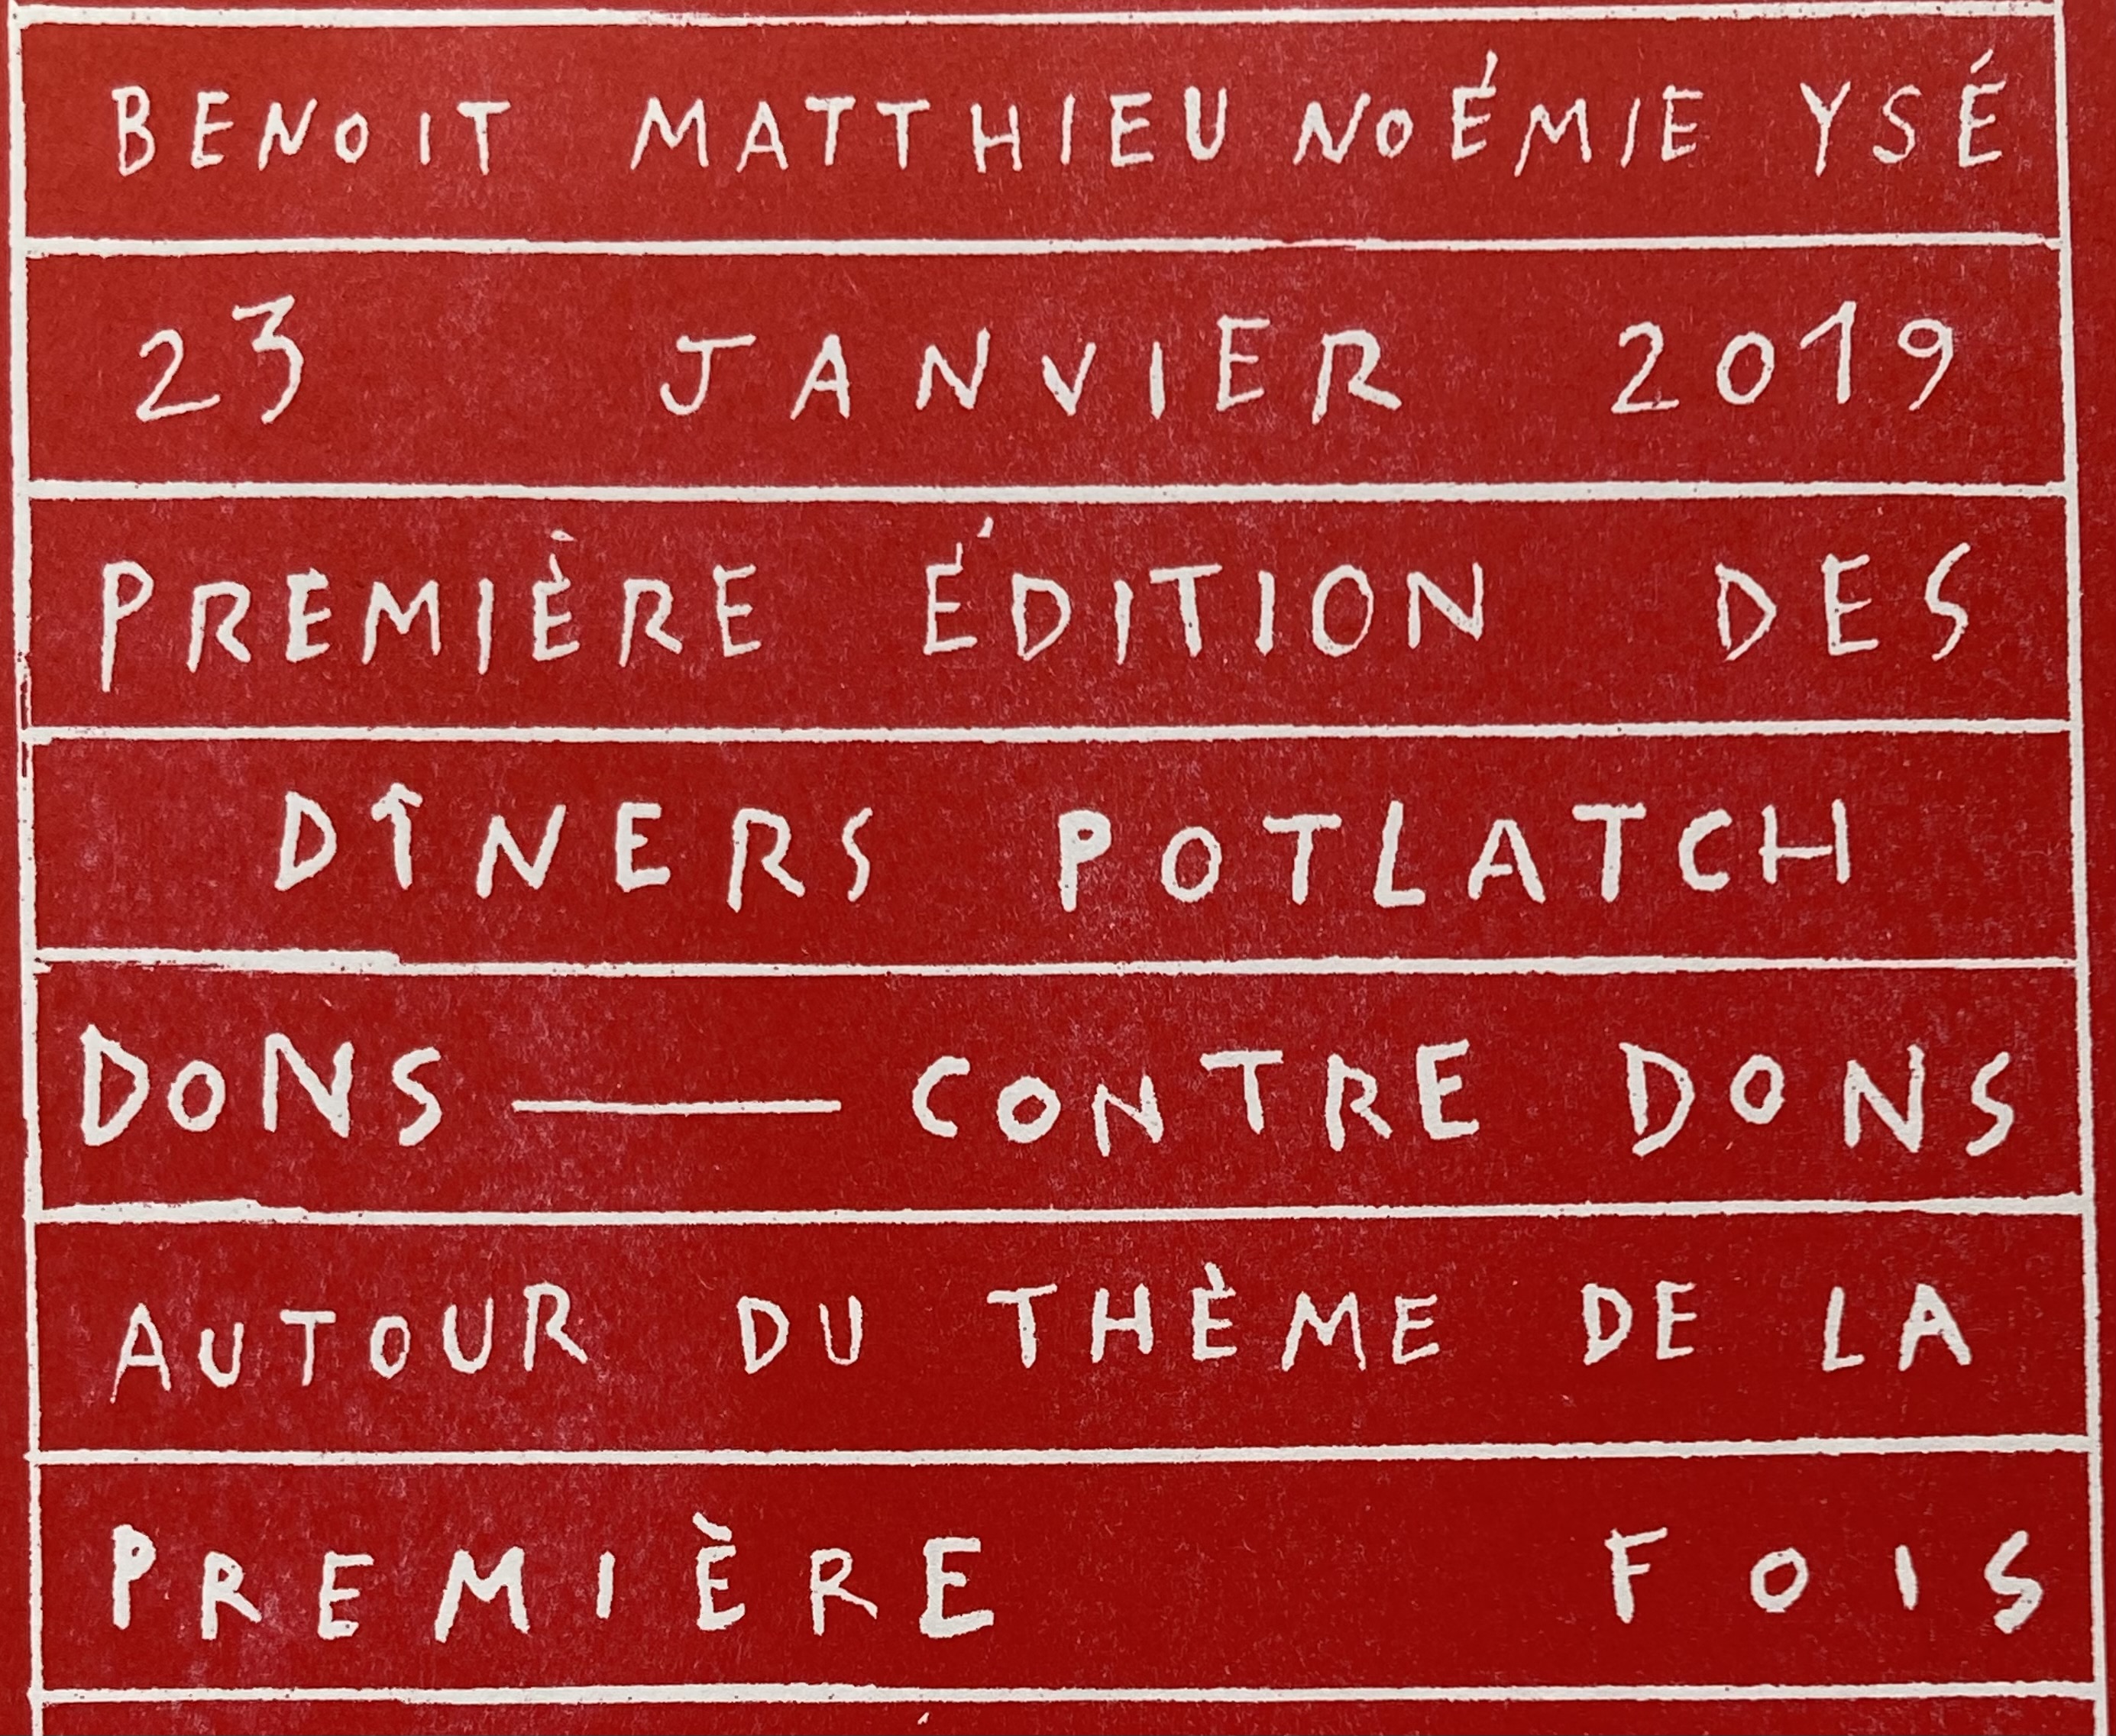 BENOIT MATTHIEU NOÉMIE YSÉ
23 JANVIER 2019
PREMIÈRE ÉDITION DES
DÎNERS POTLATCH
DONS — CONTRE DONS
AUTOUR DU THÈME DE LA
PREMIÈRE FOIS